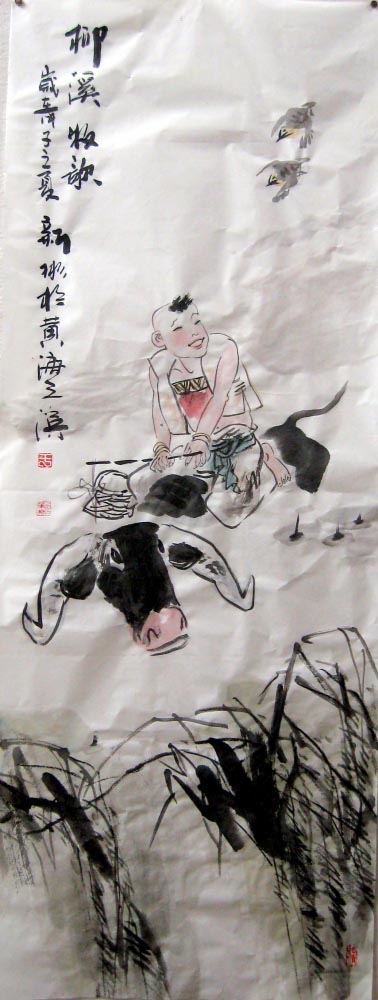 柳溪牧歌
歲子之夏 新彬於黄海之滨